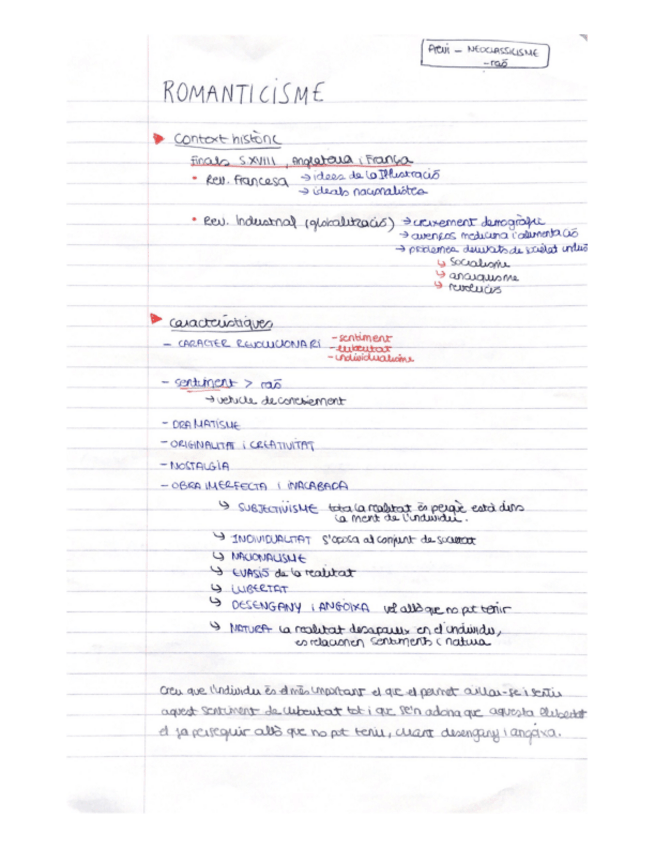 Previ - NEOCLASSICISME
- raó
ROMANTICISME
Context històric
finals S.XVIII, Anglaterra i França
• Rev. Francesa → idees de la Il·lustració
→ ideals nacionalistes
• Rev. Industrial (globalització) → creixement demogràfic
→ avenços medicina i alimentació
→ problemes derivats de societat indus
↳ Socialisme
↳ anarquisme
↳ revolucions
característiques
- CARÀCTER REVOLUCIONARI - sentiment
- llibertat
- individualisme
- sentiment > raó
→ vehicle de coneixement
- DRAMATISME
- ORIGINALITAT i CREATIVITAT
- NOSTÀLGIA
- OBRA IMERFECTA I INACABADA
↳ SUBJECTIVISME tota la realitat és perquè està dins
la ment de l'individu.
↳ INDIVIDUALITAT s'oposa al conjunt de societat
↳ NACIONALISME
↳ EVASIÓ de la realitat
↳ LLIBERTAT
↳ DESENGANY i ANGOIXA vol allò que no pot tenir
↳ NATURA la realitat desapareix en el individu,
es relacionen sentiments i natura
Creu que l'individu és el més important el que el permet aïllar-se i sentir
aquest sentiment de llibertat tot i que se'n adona que aquesta llibertat
el fa perseguir allò que no pot tenir, creant desengany i angoixa.